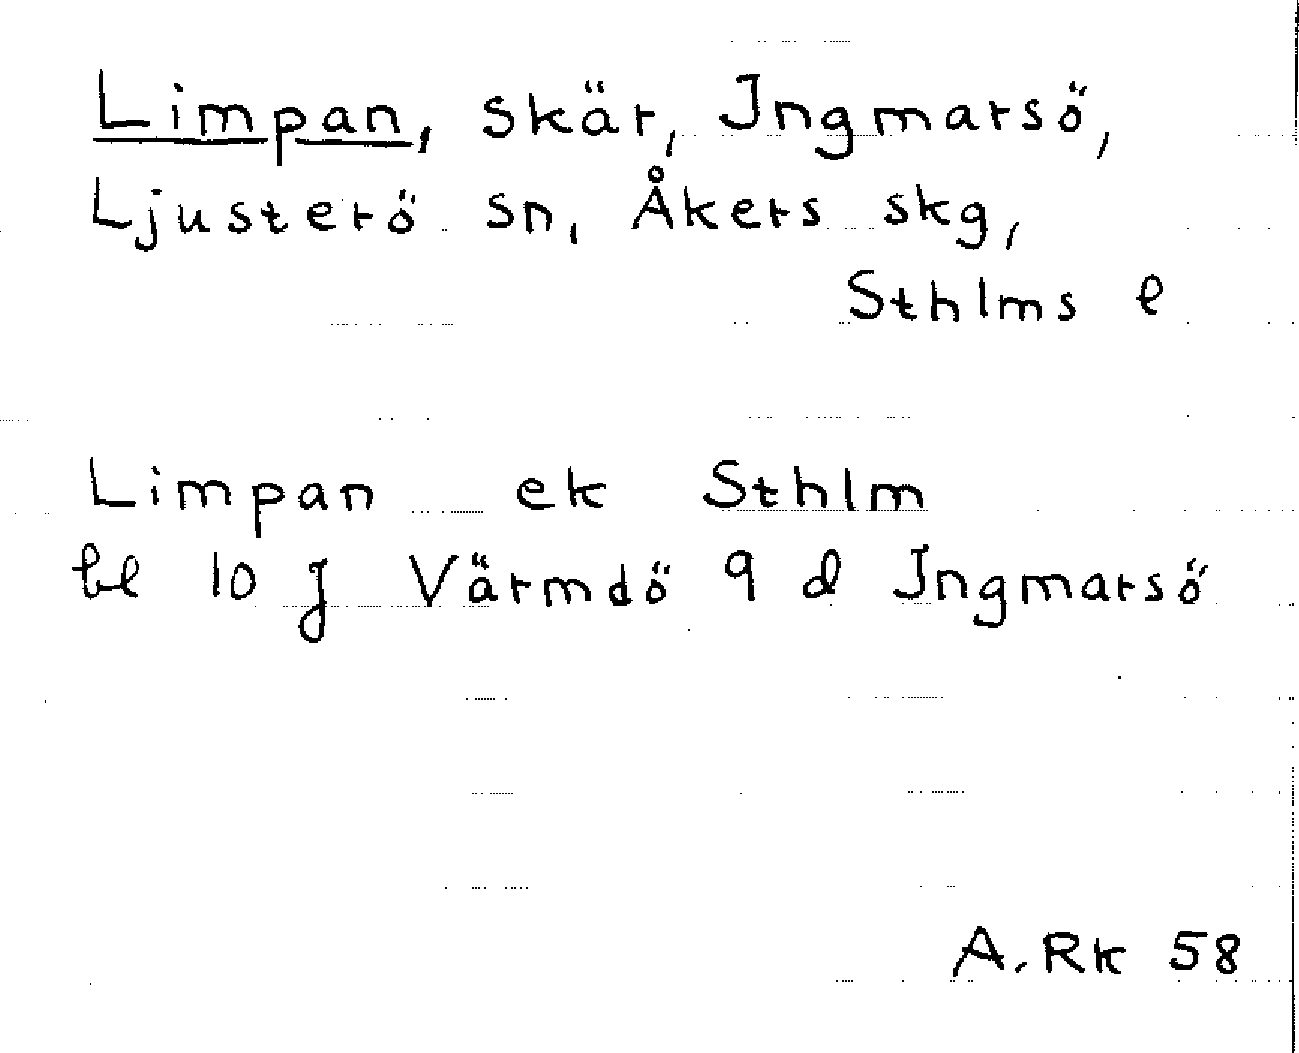 Limpan, skär, Ingmarsö,
Ljusterö sn, Åkers skg,
Sthlms l
Limpan ek Sthlm
bl 10 J Värmdö 9 d Ingmarsö
A. Rk 58